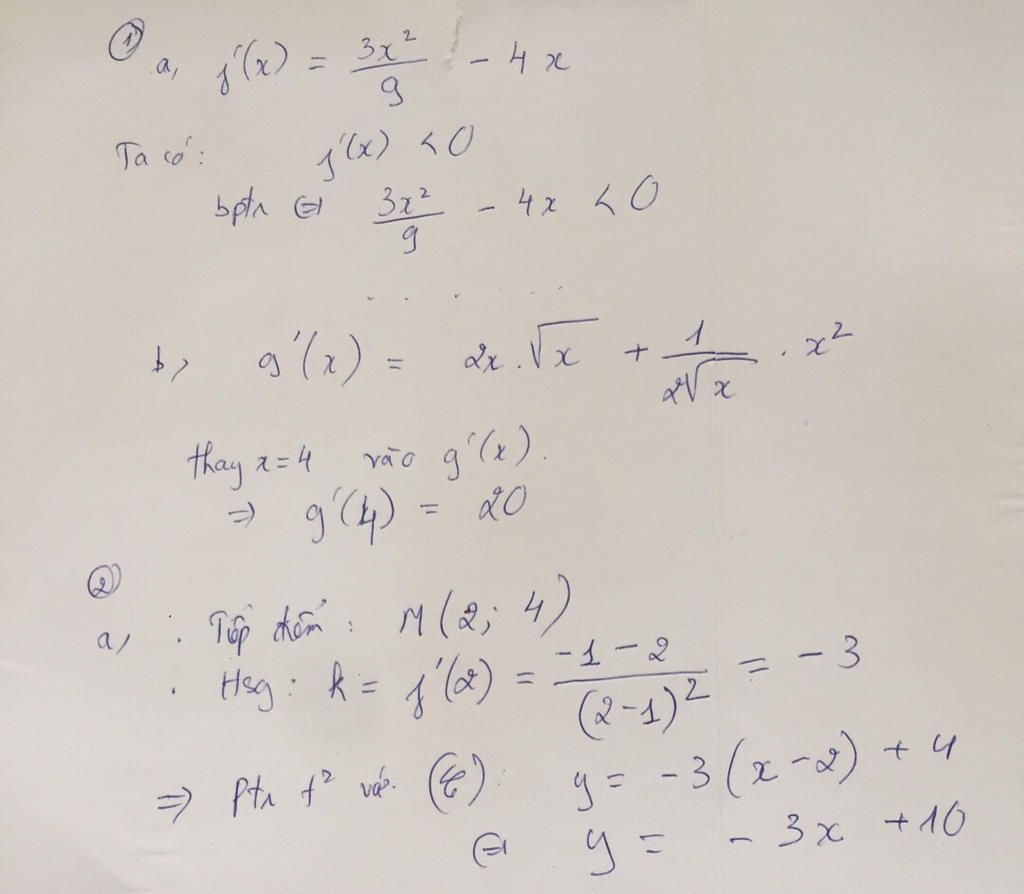 ① a, f'(x) = 3x²/9 - 4x
Ta có: f'(x) < 0
bptr ⇔ 3x²/9 - 4x < 0
. . . . .
b, g'(x) = 2x.√x + 1/(2√x) . x²
thay x=4 vào g'(x).
⇒ g'(4) = 20
②
a, . Tiếp điểm: M(2; 4)
. Hsg: k = f'(2) = (-1-2)/(2-1)² = -3
⇒ Ptr t² với (C): y = -3(x-2) + 4
⇔ y = -3x +10